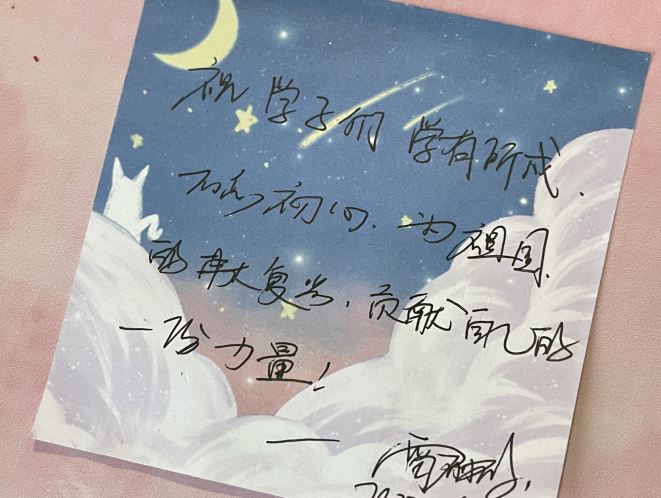 祝学子们学有所成.
不忘初心.为祖国
的伟大复兴,贡献自己的
一份力量!
——